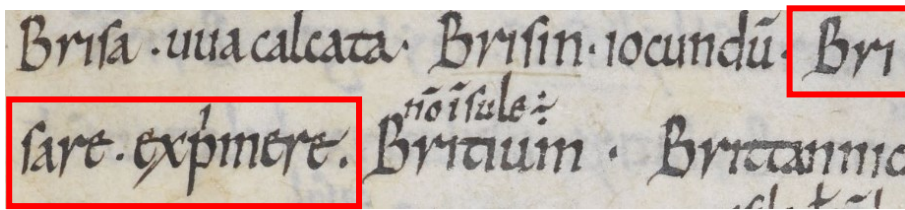 Brisa · uua calcata · Brisin · iocundū · Bri
sare · exp̍mere · Britium · Brittannic
nō īsule